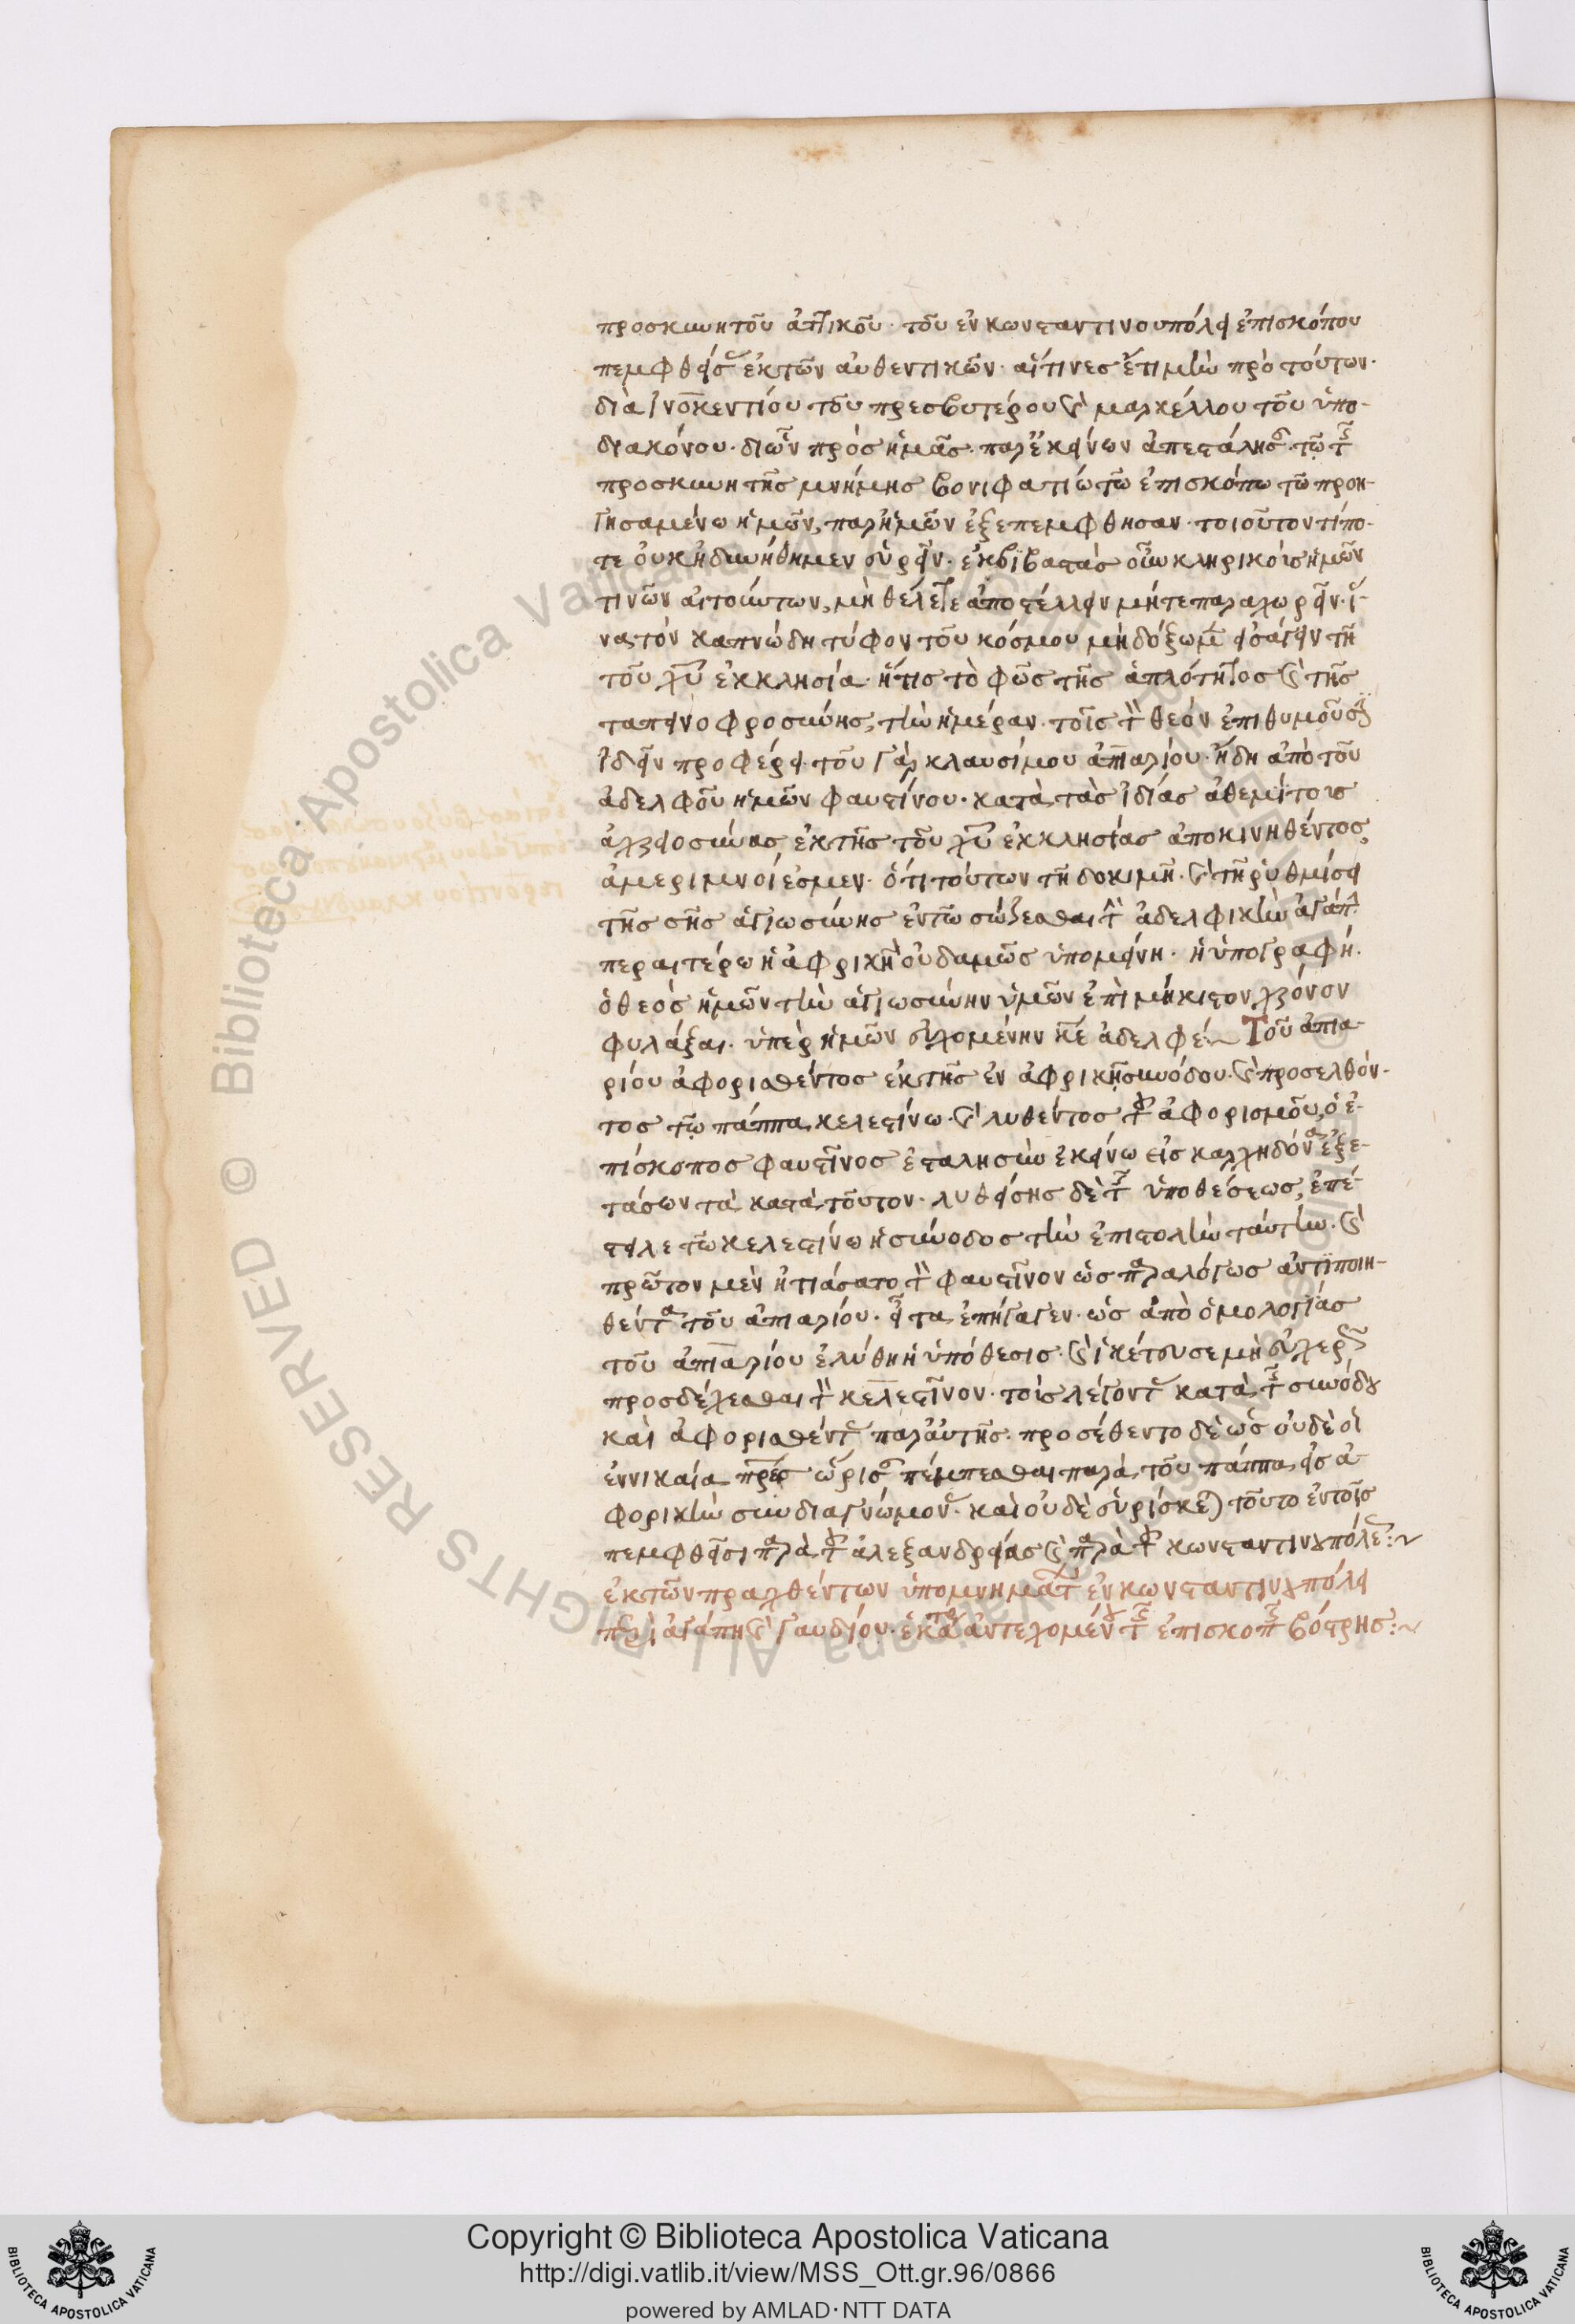 προσκυνητοῦ ἀττικοῦ· τοῦ ἐν κωνσταντινουπόλει ἐπισκόπου
πεμφθείσαις ἐκ τῶν αὐθεντικῶν· αἵτινες ἔτι μὴν πρὸ τούτων·
διὰ ἰνοκεντίου τοῦ πρεσβυτέρου καὶ μαρκέλλου τοῦ ὑπο-
διακόνου· δι ὧν πρὸς ἡμᾶς παρ ἐκείνων ἀπεστάλησαν· τῷ τῆς
προσκυνητῆς μνήμης βονιφατίω τῶ ἐπισκόπω τῶ προη-
γησαμένω ἡμῶν, παρ ἡμῶν ἐξεπεμφθησαν· τοιοῦτον τίπο-
τε οὐκ ἠδυνήθημεν εὑρεῖν· ἐκβιβαστὰς οὖν κληρικοῖς ἡμῶν
τινῶν αἰτούντων, μὴ θέλετε ἀποστέλλειν μήτε παραχωρεῖν· ἵ-
να τὸν καπνώδη τύφον τοῦ κόσμου μὴ δόξωμεν εἰσάγειν τῆ
τοῦ χυ ἐκκλησία· ἥτις τὸ φῶς τῆς ἁπλότητος καὶ τῆς
ταπεινοφροσύνης, τὴν ἡμέραν τοῖς τὸν θεόν ἐπιθυμοῦσιν
ἰδεῖν προφέρει· τοῦ γὰρ κλαυσίμου ἀπιαρίου· ἤδη ἀπὸ τοῦ
ἀδελφοῦ ἡμῶν φαυστίνου· κατὰ τὰς ἰδίας ἀθεμίτοις
ἀχρειοσύνας ἐκ τῆς τοῦ χυ ἐκκλησίας ἀποκινηθέντος,
ἀμεριμνοί ἐσμεν· ὅτι τούτων τῆ δοκιμῆ· καὶ τῆ ῥυθμίσει
τῆς σῆς ἁγιωσύνης ἐν τῶ σώζεσθαι τὴν ἀδελφικὴν ἀγάπην
περαιτέρω ἡ ἀφρικὴ οὐδαμῶς ὑπομείνη· ἡ ὑπογραφή·
ὁ θεὸς ἡμῶν τὴν ἁγιωσύνην ὑμῶν ἐπὶ μήκιστον χρόνον
φυλάξαι· ὑπὲρ ἡμῶν εὐχομένην κε ἀδελφέ:~ Τοῦ ἀπια
ρίου ἀφορισθέντος ἐκ τῆς ἐν ἀφρικῆ συνόδου· καὶ προσελθόν-
τος τῷ πάππα κελεστίνω· καὶ λυθέντος τοῦ ἀφορισμοῦ, ὁ ἐ-
πίσκοπος φαυστῖνος ἐστάλη σὺν ἐκείνω εἰς καρχηδόνα ἐξε-
τάσων τὰ κατὰ τοῦτον· λυθείσης δὲ τῆς ὑποθέσεως, ἐπέ-
στειλε τῶ κελεστίνω ἡ σύνοδος τὴν ἐπιστολὴν ταύτην· καὶ
πρῶτον μὲν ἠτιάσατο τὸν φαυστῖνον ὡς παραλόγως ἀντιποιη-
θέντα τοῦ ἀπιαρίου· εἶτα ἐπήγαγεν· ὡς ἀπὸ ὁμολογίας
τοῦ ἀπιαρίου ἐλύθη ἡ ὑπόθεσις· καὶ ἱκέτευσε μὴ εὐχερῶς
προσδέχεσθαι τὸν κελεστῖνον· τοὺς λέγοντας κατὰ τῆς συνόδου
καὶ ἀφορισθέντας παρ αὐτῆς· προσέθεντο δὲ ὡς οὐδὲ οἱ
ἐν νικαία πρες ὥρισαν πέμπεσθαι παρὰ τοῦ πάππα εἰς ἀ
φρικὴν συνδιαγνώμονας· καὶ οὐδὲ εὑρίσκεται τοῦτο ἐν τοῖς
πεμφθεῖσι παρὰ τοῦ ἀλεξανδρείας καὶ παρὰ τοῦ κωνσταντινουπόλεως:~
ἐκ τῶν πραχθέντων ὑπομνημάτων ἐν κωνσταντινουπόλει
περὶ ἀγάπης καὶ γαυδίου· ἑκατέρου ἀντεχομένου τῆς ἐπισκοπῆς βόστρης:~
Copyright © Biblioteca Apostolica Vaticana
http://digi.vatlib.it/view/MSS_Ott.gr.96/0866
powered by AMLAD·NTT DATA